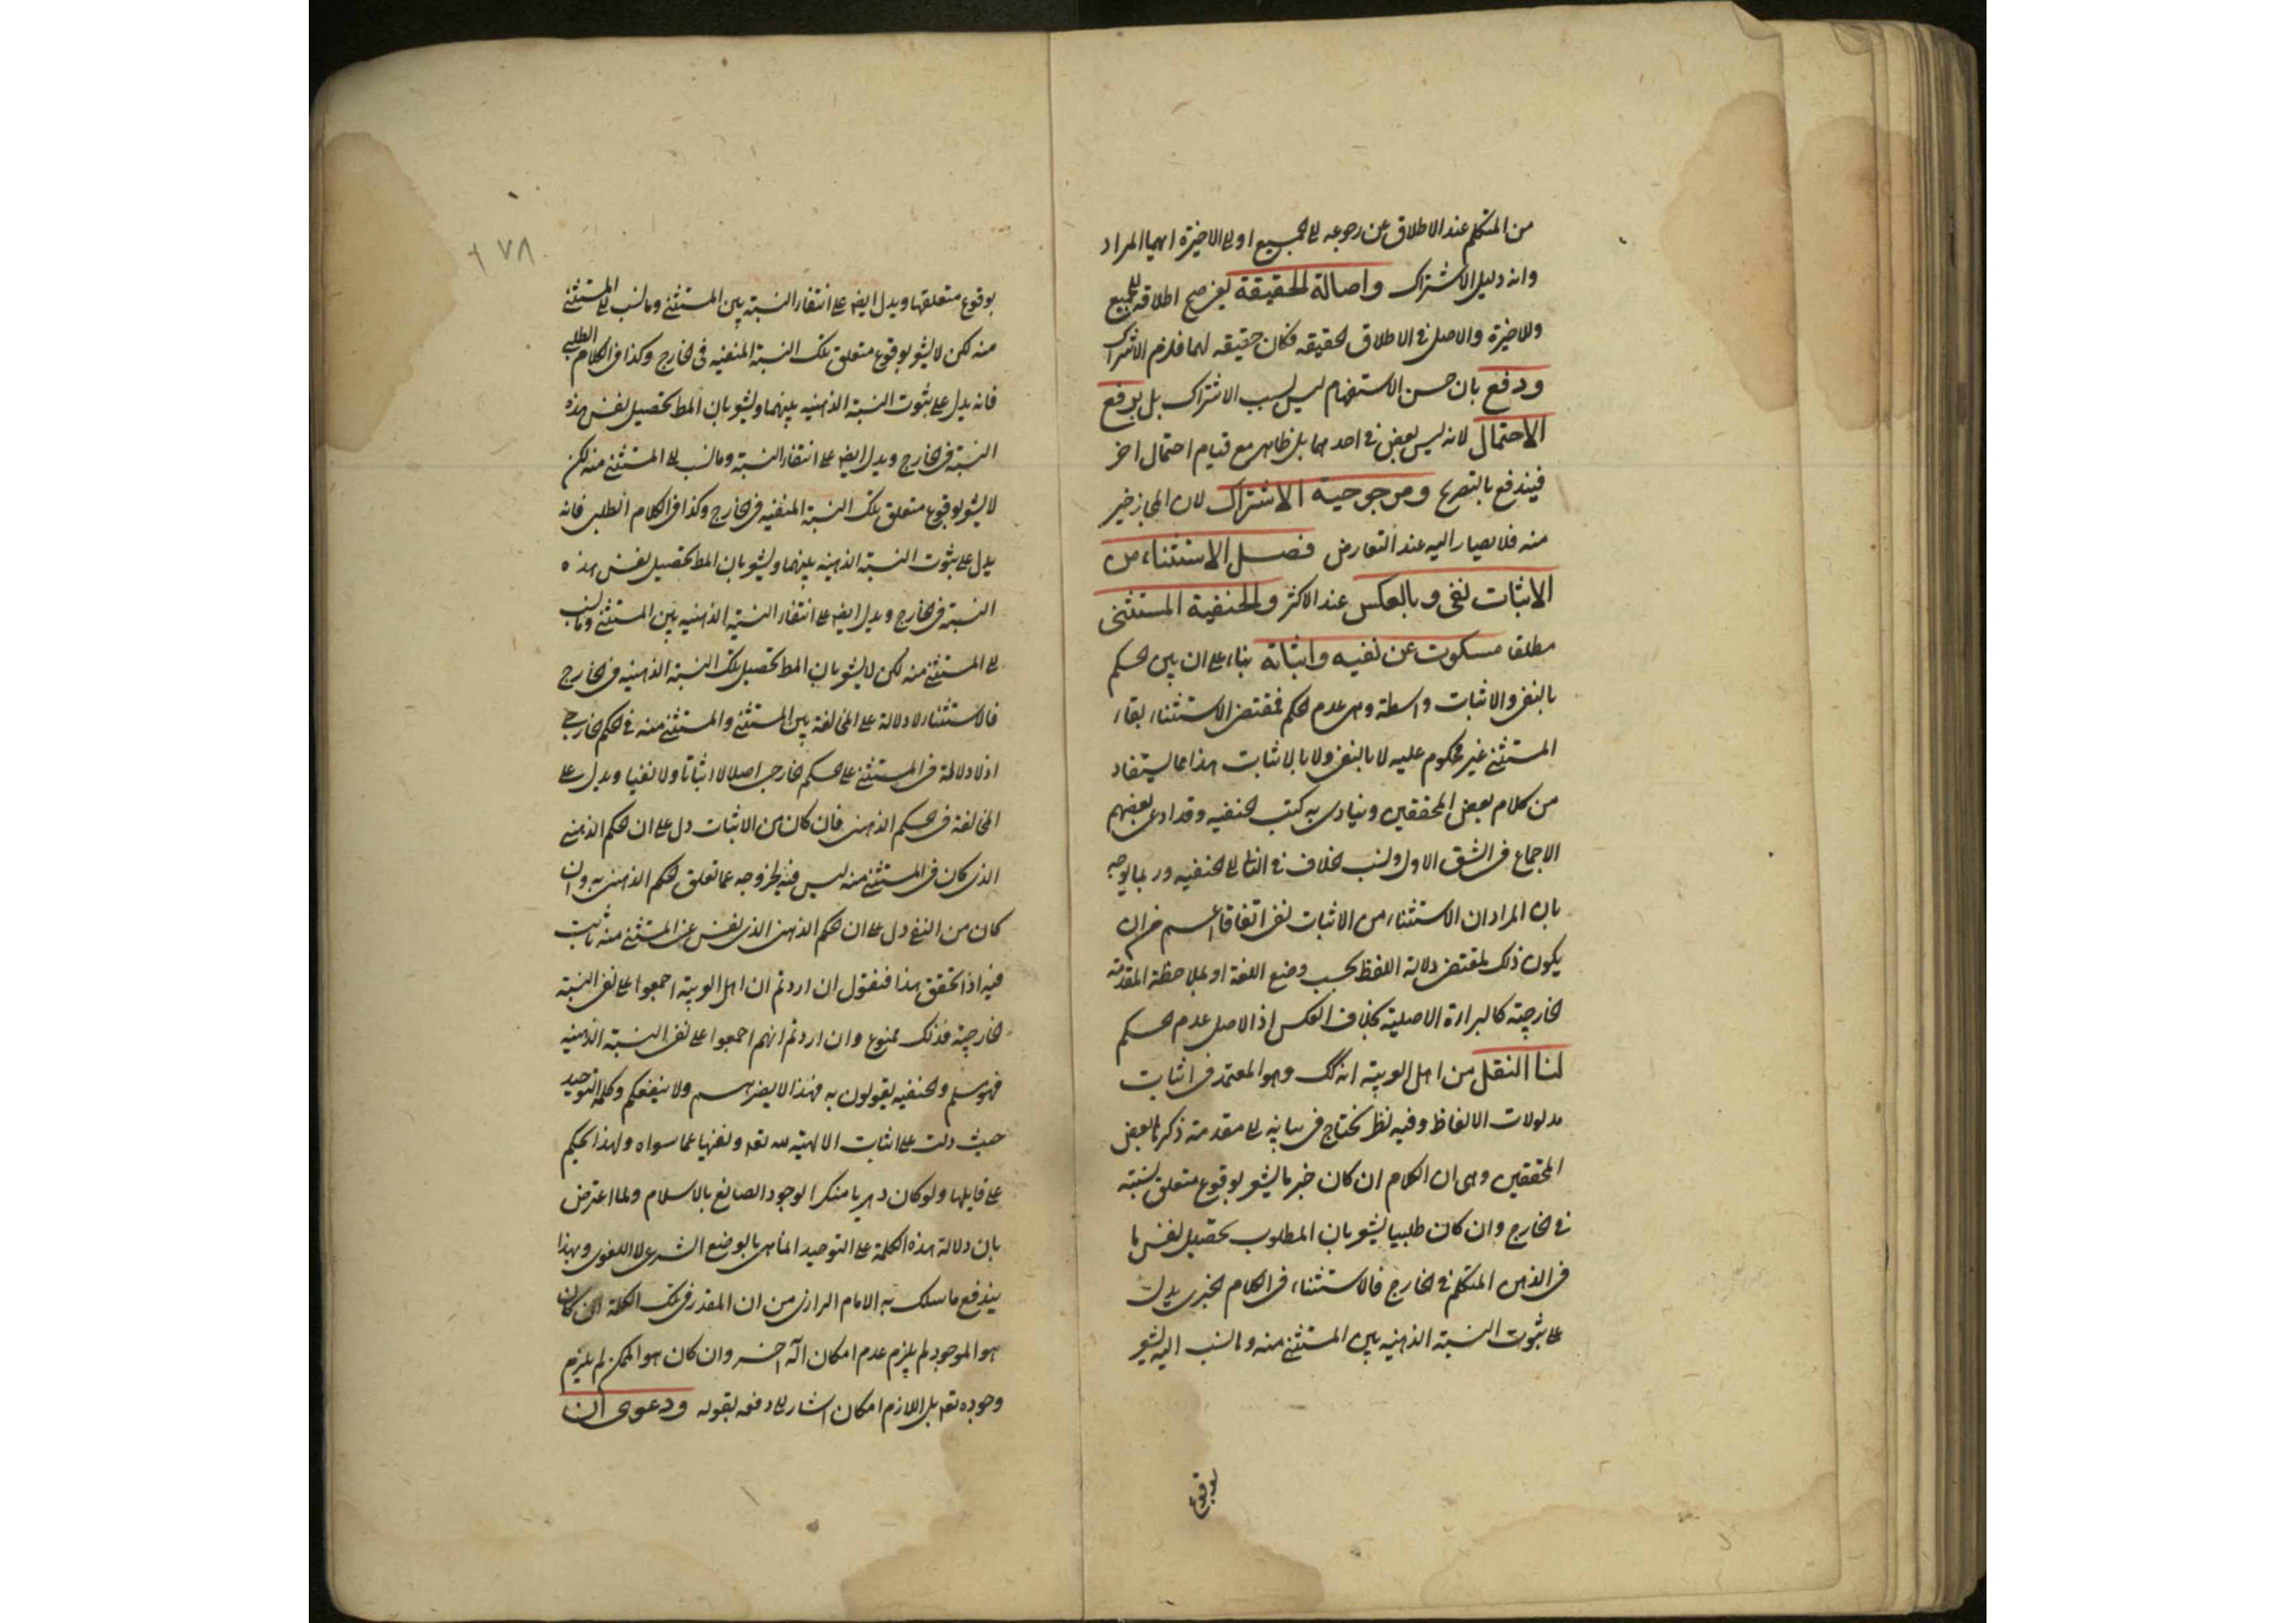 من المتكلم عند الاطلاق عن رجوعه الى الجميع او الى الاخيرة ايهما المراد
وانه دليل الاشتراك واصالة الحقيقة يعنى صح اطلاقه للجميع
وللاخيرة والاصل فى الاطلاق الحقيقه فكان حقيقه لهما فلزم الاشتراك
ودفع بان حسن الاستفهام ليس لسبب الاشتراك بل برفع
الاحتمال لانه ليس بنص فى احدهما بل ظاهر مع قيام احتمال اخر
فيندفع بالتصريح ومرجوحية الاشتراك لان المجاز خير
منه فلا يصار اليه عند التعارض فصل الاستثناء من
الاثبات نفى وبالعكس عند الاكثر والحنفية المستثنى
مطلقا مسكوت عن نفيه واثباته بناء على ان بين الحكم
بالنفى والاثبات واسطة وهى عدم الحكم فمقتضى الاستثناء بقاء
المستثنى غير محكوم عليه لا بالنفى ولا بالاثبات هذا مما يستفاد
من كلام بعض المحققين وينادى به كتب الحنفيه وقد ادعى بعضهم
الاجماع فى الشق الاول ونسب الخلاف فى الثانى الى الحنفيه وربما يوجه
بان المراد ان الاستثناء من الاثبات نفى اتفاقا اعم من ان
يكون ذلك بمقتضى دلالة اللفظ بحسب وضع اللغة او بملاحظة المقدمة
الخارجية كالبراءة الاصلية بخلاف العكس اذ الاصل عدم الحكم
لنا النقل من اهل العربية انه كك وهو المعتمد فى اثبات
مدلولات الالفاظ وفيه نظر يحتاج فى بيانه الى مقدمة ذكرها بعض
المحققين وهى ان الكلام ان كان خبريا يشعر بوقوع متعلق نسبته
فى الخارج وان كان طلبيا يشعر بان المطلوب تحصيل نفس ما
فى الذهن المتكلم فى الخارج فالاستثناء فى الكلام الخبرى يدل
على ثبوت النسبة الذهنيه بين المستثنى منه وما نسب اليه يشعر
بوقوع
١٧٨
بوقوع متعلقها ويدل ايضا على انتفاء النسبة بين المستثنى وما نسب الى المستثنى
منه لكن لا يشعر بوقوع متعلق تلك النسبة المنفيه فى الخارج وكذا فى الكلام الطلبى
فانه يدل على ثبوت النسبة الذهنيه بينهما ويشعر بان المط تحصيل نفس هذه
النسبة فى الخارج ويدل ايضا على انتفاء النسبة وما نسب الى المستثنى منه لكن
لا يشعر بوقوع متعلق تلك النسبة المنفيه فى الخارج وكذا فى الكلام الطلبى فانه
يدل على ثبوت النسبة الذهنيه بينهما ويشعر بان المط تحصيل نفس هذه
النسبة فى الخارج ويدل ايضا على انتفاء النسبة الذهنيه بين المستثنى وما نسب
الى المستثنى منه لكن لا يشعر بان المط تحصيل تلك النسبة الذهنيه فى الخارج
فالاستثناء لا دلالة على المخالفة بين المستثنى والمستثنى منه فى الحكم الخارجى
اذ لا دلالة فى المستثنى على حكم خارجى اصلا لا اثباتا ولا نفيا ويدل على
المخالفة فى الحكم الذهنى فان كان من الاثبات دل على ان الحكم الذهنى
الذى كان فى المستثنى منه ليس فيه لخروجه عما تعلق الحكم الذهنى به وان
كان من النفى دل على ان الحكم الذهنى الذى نفى عن المستثنى منه ثابت
فيه اذا تحقق هذا فنقول ان اردتم ان اهل العربية اجمعوا على نفى النسبة
الخارجية فذلك ممنوع وان اردتم انهم اجمعوا على نفى النسبة الذهنيه
فهو مسلم والحنفيه يقولون به فهذا لا يضرهم ولا ينفعكم وكلمة التوحيد
حيث دلت على اثبات الالهية لله تعه ونفيها عما سواه ولهذا يحكم
على قايلها ولو كان دهريا منكرا لوجود الصانع بالاسلام ولما اعترض
بان دلالة هذه الكلمة على التوحيد انما هى بالوضع الشرعى لا اللغوى وبهذا
يندفع ما سلك به الامام الرازى من ان المقدر فى تلك الكلمة ان كان
هو الموجود لم يلزم عدم امكان اله آخر وان كان هو الممكن لم يلزم
وجوده تعه بل اللازم امكان اشار الى دفعه بقوله ودعوى ان